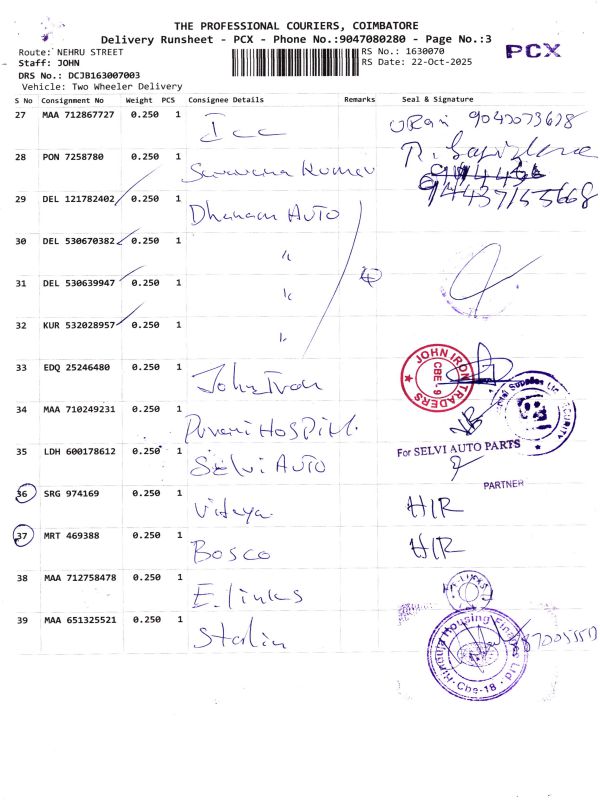 THE PROFESSIONAL COURIERS, COIMBATORE
Delivery Runsheet - PCX - Phone No.:9047080280 - Page No.:3
Route: NEHRU STREET
RS No.: 1630070
PCX
Staff: JOHN
RS Date: 22-Oct-2025
DRS No.: DCJB163007003
Vehicle: Two Wheeler Delivery
S No Consignment No Weight PCS Consignee Details Remarks Seal & Signature
27 MAA 712867727 0.250 1 Icc
28 PON 7258780 0.250 1 Saravana Kumar
94437155668
29 DEL 121782402 0.250 1 Dhanam AUTO
30 DEL 530670382 0.250 1 "
31 DEL 530639947 0.250 1 " 4
32 KUR 532028957 0.250 1 "
33 EDQ 25246480 0.250 1 John Iron
JOHN IRON TRADERS CBE. 9
34 MAA 710249231 0.250 1 HOSPITAL
SECURITY
35 LDH 600178612 0.250 1 SELVI AUTO
For SELVI AUTO PARTS
PARTNER
36 SRG 974169 0.250 1 Vidya HIR
37 MRT 469388 0.250 1 Bosco HIR
38 MAA 712758478 0.250 1 E.links
39 MAA 651325521 0.250 1 Stalin
Housing Finance Ltd
Cbe-18